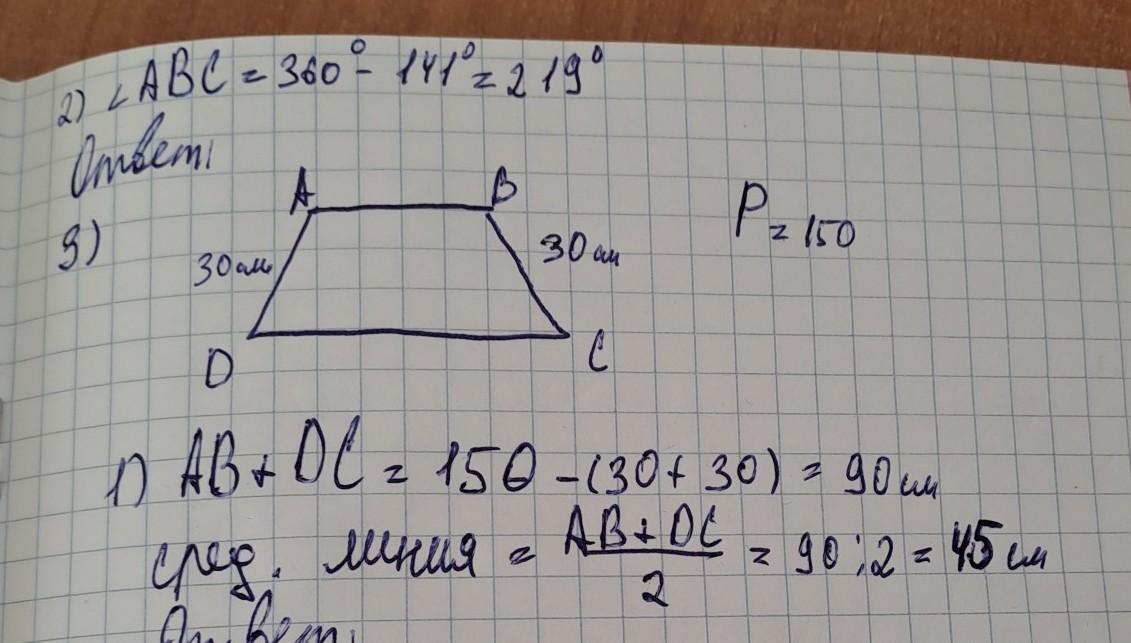 2) ∠ABC = 360° - 141° = 219°
Ответ:
3)
A
B
30 см
30 см
P = 150
D
C
1) AB + DC = 150 - (30 + 30) = 90 см
сред. линия = AB + DC / 2 = 90 : 2 = 45 см
Ответ: